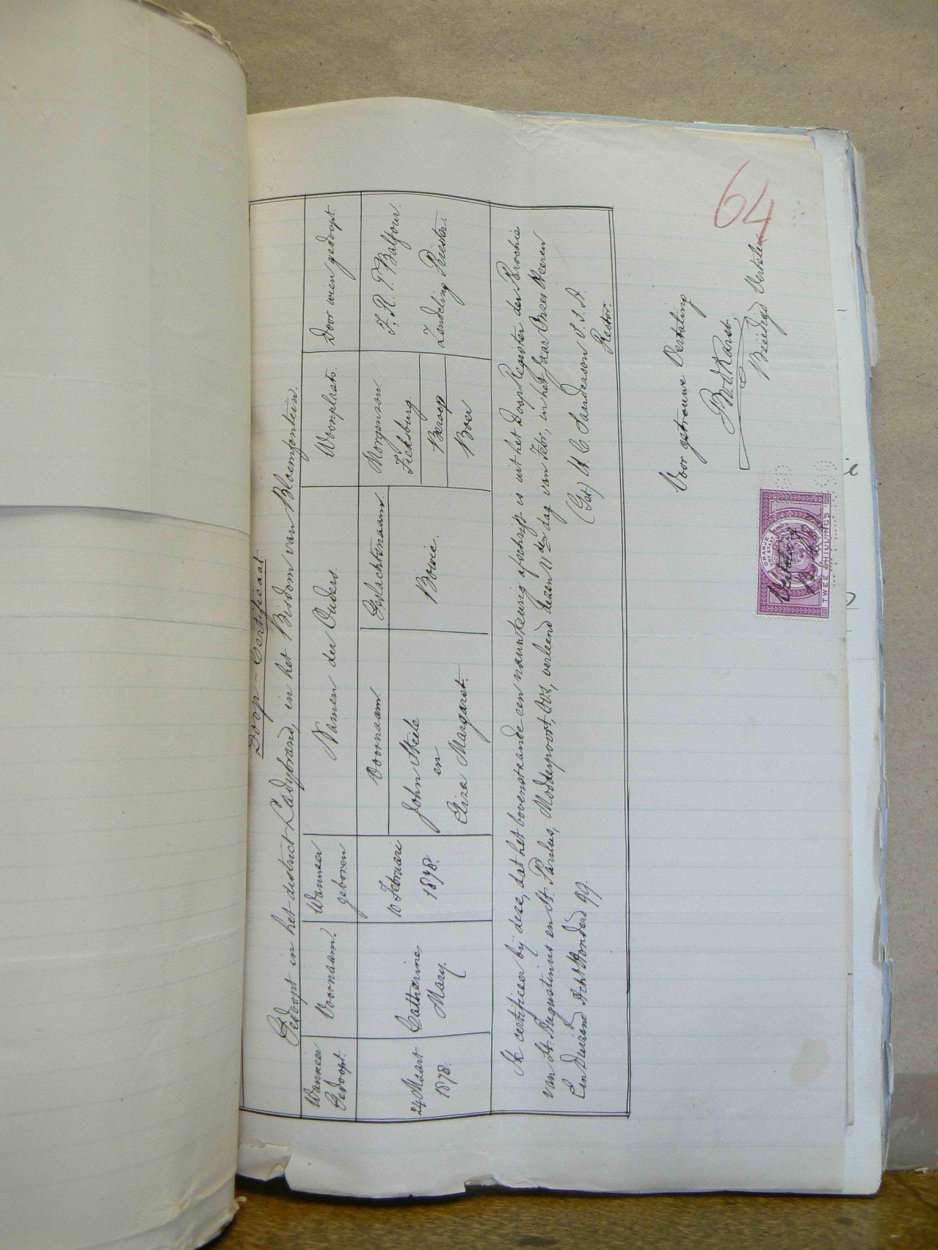 Doop-Certificaat.
Gedoopt in het district Ladybrand, in het Bisdom van Bloemfontein.
Wanneer Gedoopt.
Voornaam.
Wanneer geboren
Namen der Ouders.
Woonplaats.
Door wien gedoopt
24 Maart 1878.
Catherine Mary.
10 Februari 1878.
Voornaam
John Steele
en
Eliza Margaret.
Geslachtsnaam
Bowie.
Morgenzon
Ficksburg
Beroep
Boer
F. R. T. Balfour
Zendeling Priester.
Ik certificeer bij deze, dat het bovenstaande een nauwkeurig afschrift is uit het Doop Register der Parochie
van St. Augustinus en St. Paulus, Modderpoort, OVS, verleend dezen 11den dag van Febr, in het Jaar Onzes Heeren
Een Duizend Acht Honderd 99
(Get) W. C. Sanderson S.S.A
Rector.
Voor getrouwe Vertaling
Beëdigd Vertaler
64
ORANJE
TWEE SHILLINGS
Vertaling